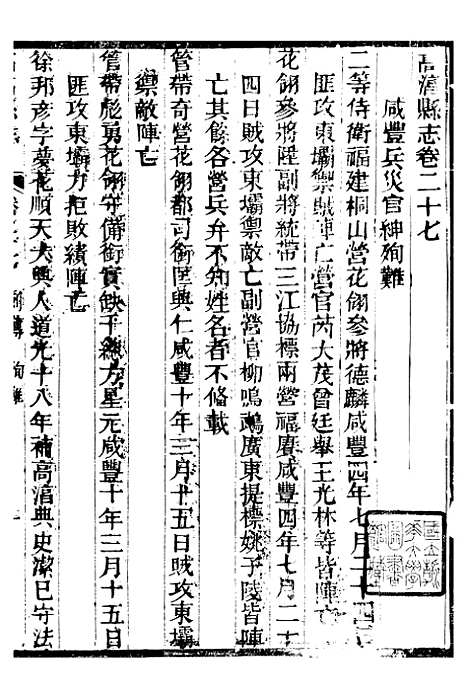 高淳縣志卷二十七
咸豐兵災官紳殉難
二等侍衛福建桐山營花翎參將德麟咸豐四年七月二十四日
匪攻東壩禦賊陣亡營官芮大茂曾廷舉王光林等皆陣亡
花翎參將陞副將統帶三江協標兩營福賡咸豐四年七月二十
四日賊攻東壩禦敵亡副營官柳鳴鵡廣東提標姚子陵皆陣
亡其餘各營兵弁不知姓名者不備載
管帶奇營花翎都司銜匡興仁咸豐十年三月十五日賊攻東壩
禦敵陣亡
管帶彪勇花翎守備銜實缺千總方星元咸豐十年三月十五日
匪攻東壩力拒敗績陣亡
徐邦彥字夢花順天大興人道光十八年補高淳典史潔已守法